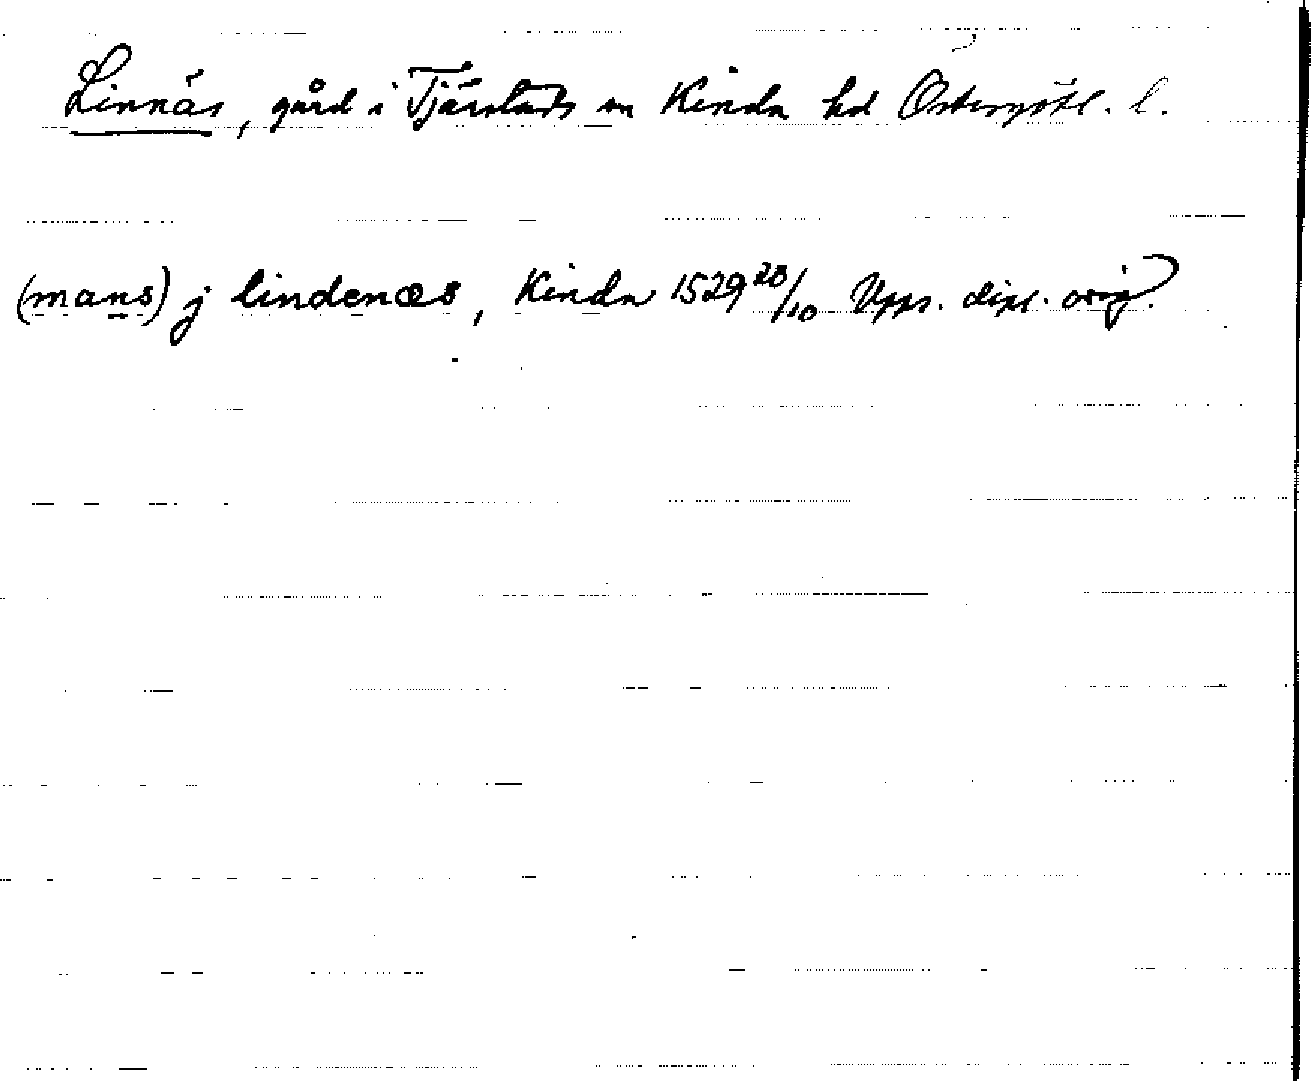 Linnäs, gård i Tjärstads sn Kinda hd Östergötl. l.
(mans) j lindenæs, Kinda 1529 28/10 Upps. dipl. orig.